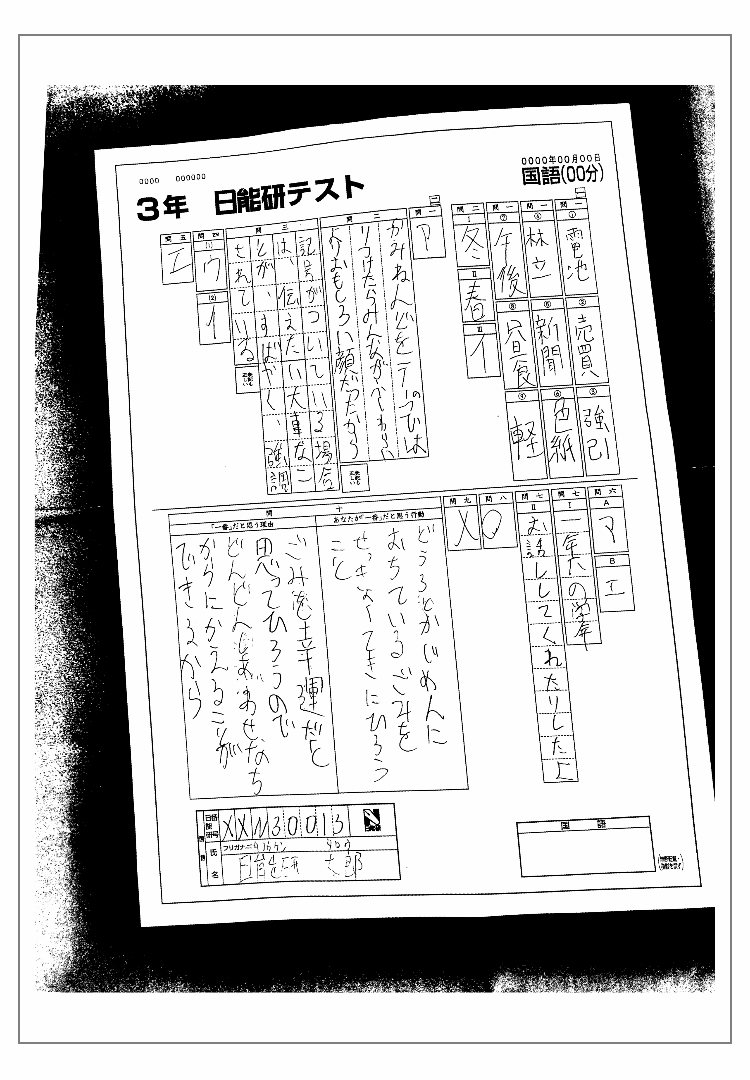 0000 000000
3年 日能研テスト
0000年00月00日
国語(00分)
一
問一
①
電池
②
売買
③
強引
④
林立
⑤
新聞
⑥
色紙
⑦
午後
⑧
昼食
⑨
軽
問二
Ⅰ
冬
Ⅱ
春
Ⅲ
イ
二
問一
ア
問二
かみねんどを
よりおもしろい顔だったから
問三
記号がついている場合
は、伝えたい大事なこ
とが、すばやく、強調
されている
問四
(1)
ウ
(2)
イ
問五
エ
問六
A
ア
B
エ
問七
Ⅰ
一年六の学年
Ⅱ
お話ししてくれたりしたよ
問八
O
問九
X
問十
あなたが「一番」だと思う行動
どうろとかじめんに
おちているごみを
せっきょくてきにひろう
こと
「一番」だと思う理由
ごみを幸運だと
思ってひろうので
どんどんしあわせなち
からにかえることが
できるから
XXN30013
日能研
フリガナ
氏名
日能研 太郎
国語